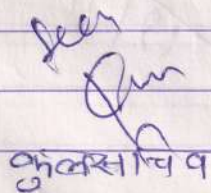 Seen
कुलसचिव